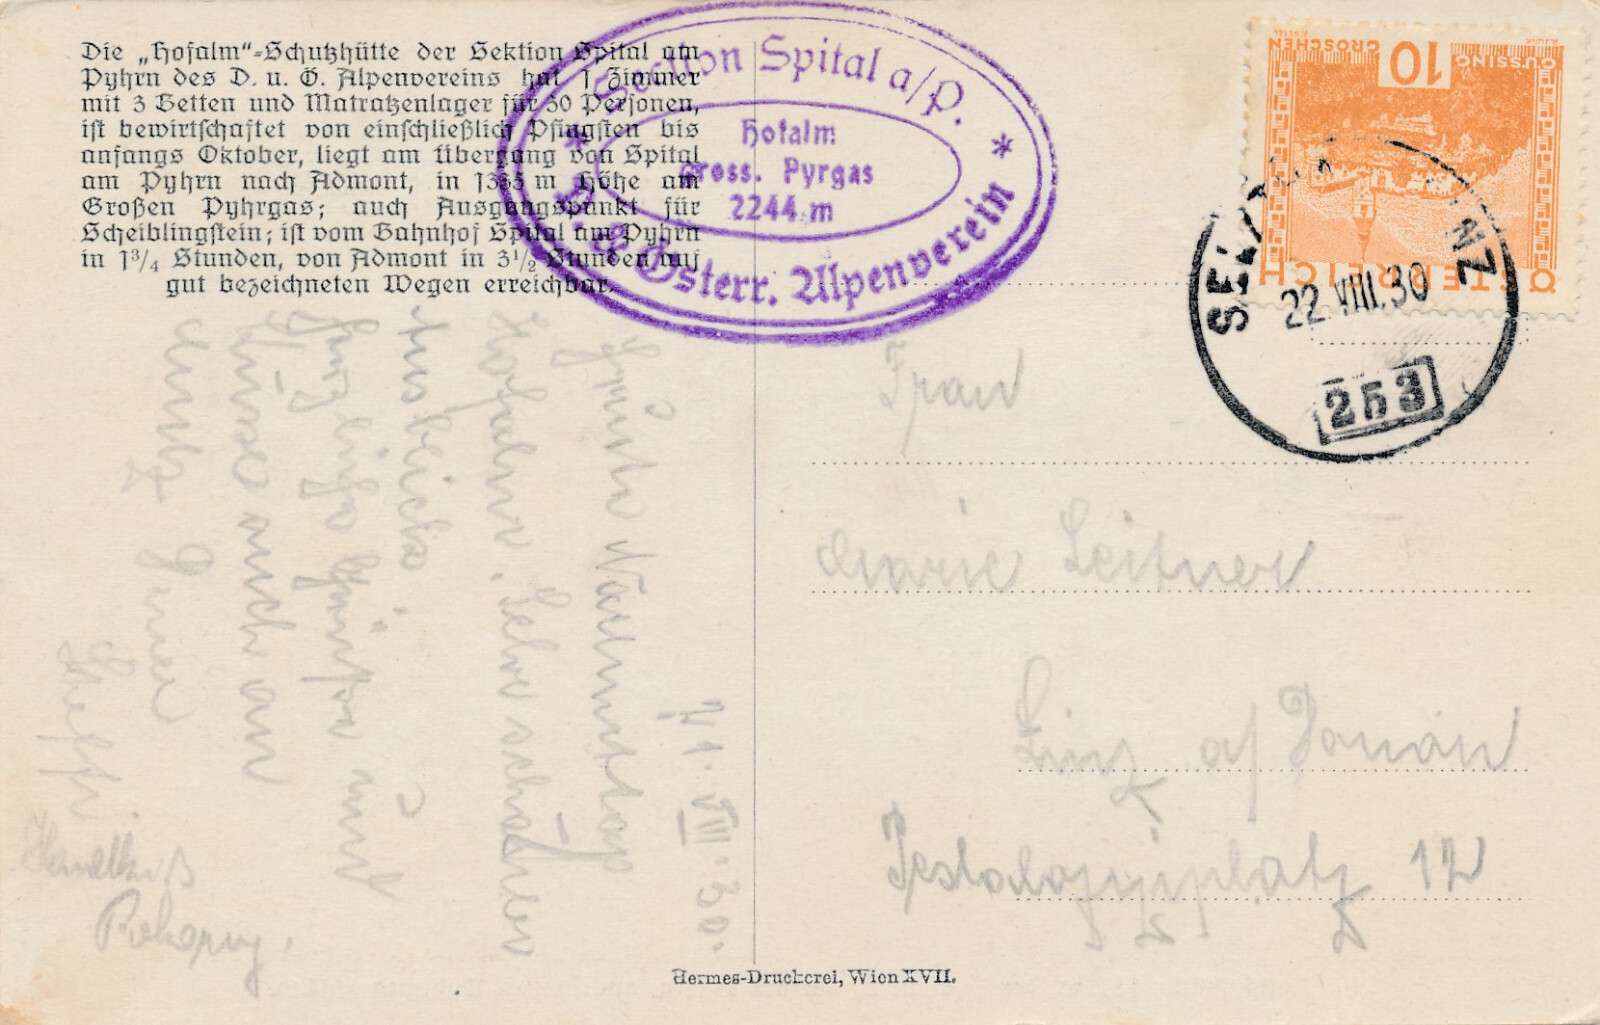 Die „Hofalm“-Schutzhütte der Sektion Spital am
Pyhrn des D. u. Ö. Alpenvereins hat 1 Zimmer
mit 3 Betten und Matratzenlager für 30 Personen,
ist bewirtschaftet von einschließlich Pfingsten bis
anfangs Oktober, liegt am Übergang von Spital
am Pyhrn nach Admont, in 1335 m Höhe am
Großen Pyhrgas; auch Ausgangspunkt für
Scheiblingstein; ist vom Bahnhof Spital am Pyhrn
in 1³/₄ Stunden, von Admont in 3¹/₂ Stunden auf
gut bezeichneten Wegen erreichbar.
* Section Spital a/P. *
D. & Österr. Alpenverein
Hofalm
Gross. Pyrgas
2244 m
10
GROSCHEN
GÜSSING
ÖSTERREICH
22.VIII.30
253
VIII.30.
Hofalm. Sehr schöner
Ausblick.
Herzliche Grüße und
Küsse auch an
Steffi
Prokopny.
Frau
Marie Leitner
Linz a/Donau
Pestalozziplatz 12
Hermes-Druckerei, Wien XVII.